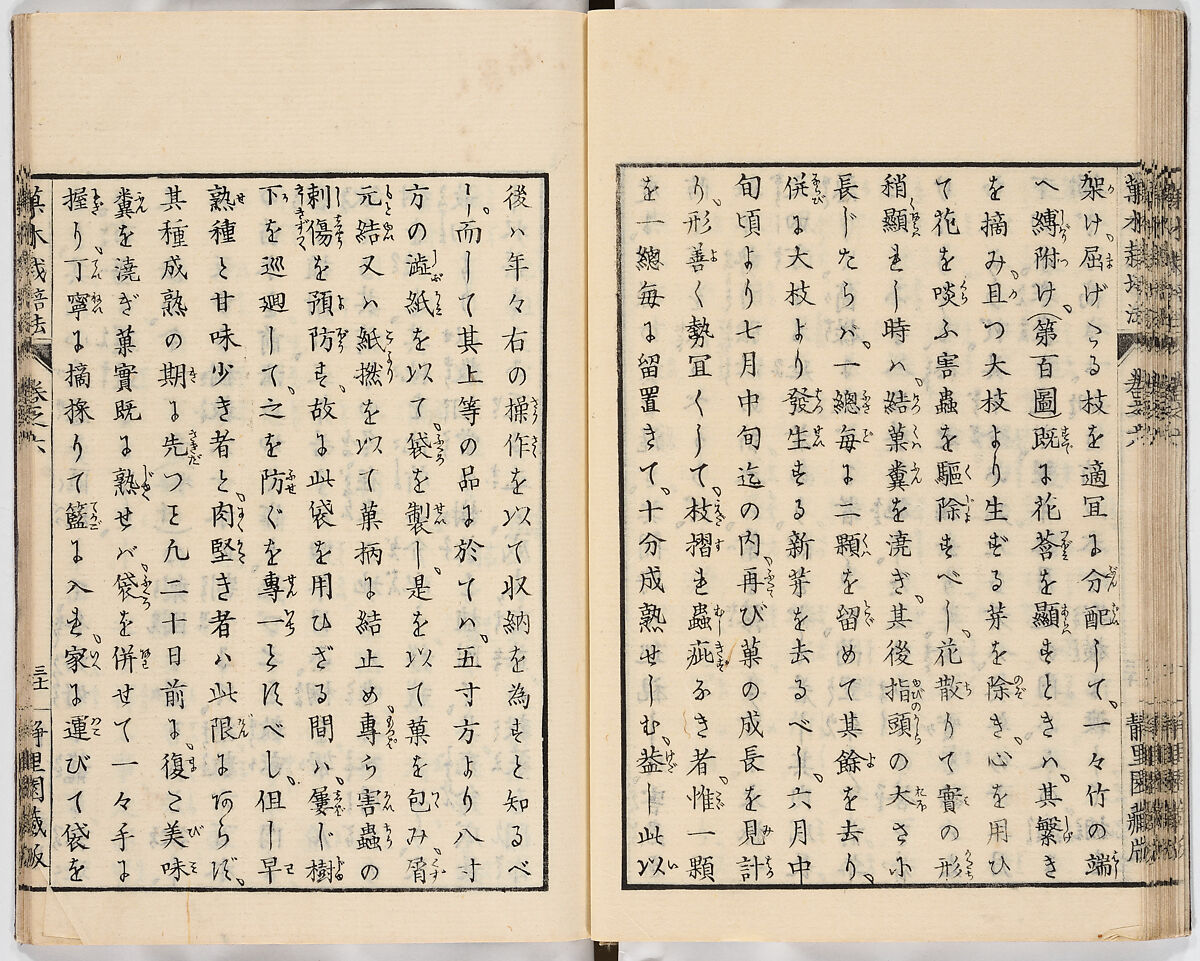 菓木栽培法 卷之六 靜里園藏版
架け、屈げたる枝を適冝に分配して、一々竹の端
へ縛附け、(第百圖)既に花莟を顯すときハ、其繁き
を摘み、且つ大枝より生ずる芽を除き、心を用ひ
て花を啖ふ害蟲を驅除すべし、花散りて實の形
稍顯れし時ハ、結菓糞を澆ぎ、其後指頭の大さに
長じたらバ、一總毎に二顆を留めて其餘を去り、
併に大枝より發生する新芽を去るべし、六月中
旬頃より七月中旬迄の内、再び菓の成長を見計
り、形善く勢冝くして、枝摺れ蟲疵なき者、惟一顆
を一總毎に留置きて、十分成熟せしむ、盖し此以
後ハ年々右の操作を以て収納を為すと知るべ
し、而して其上等の品に於てハ、五寸方より八寸
方の澁紙を以て袋を製し、是を以て菓を包み、屑
元結又ハ紙撚を以て菓柄に結止め、專ら害蟲の
刺傷を預防す、故に此袋を用ひざる間ハ、屢ゞ樹
下を巡廻して、之を防ぐを專一とすべし、但し早
熟種と甘味少き者と、肉堅き者ハ此限にあらず、
其種成熟の期に先つこと凡二十日前に、復こ美味
糞を澆ぎ菓實既に熟せバ、袋を併せて一々手に
握り、丁寧に摘採りて籃に入れ、家に運びて袋を
菓木栽培法 卷之六 三十一 靜里園藏版